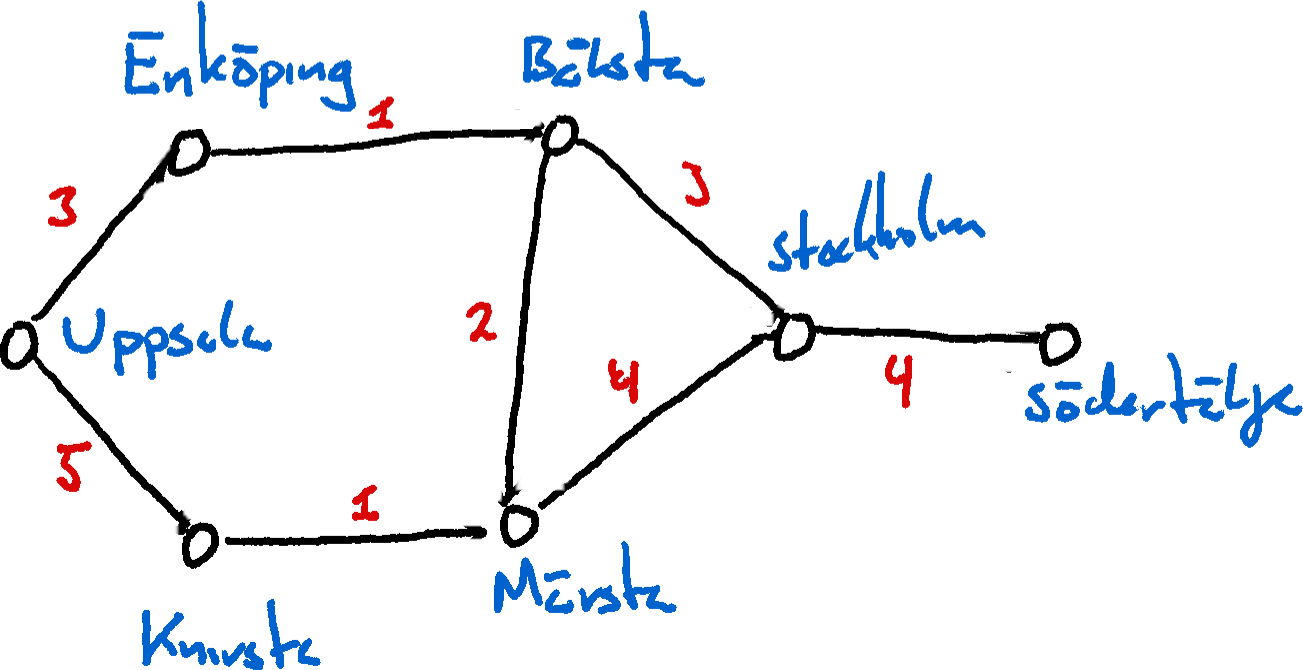 Enköping
Bålsta
1
3
3
stockholm
Uppsala
2
4
4
södertälje
5
1
Märsta
Knivsta